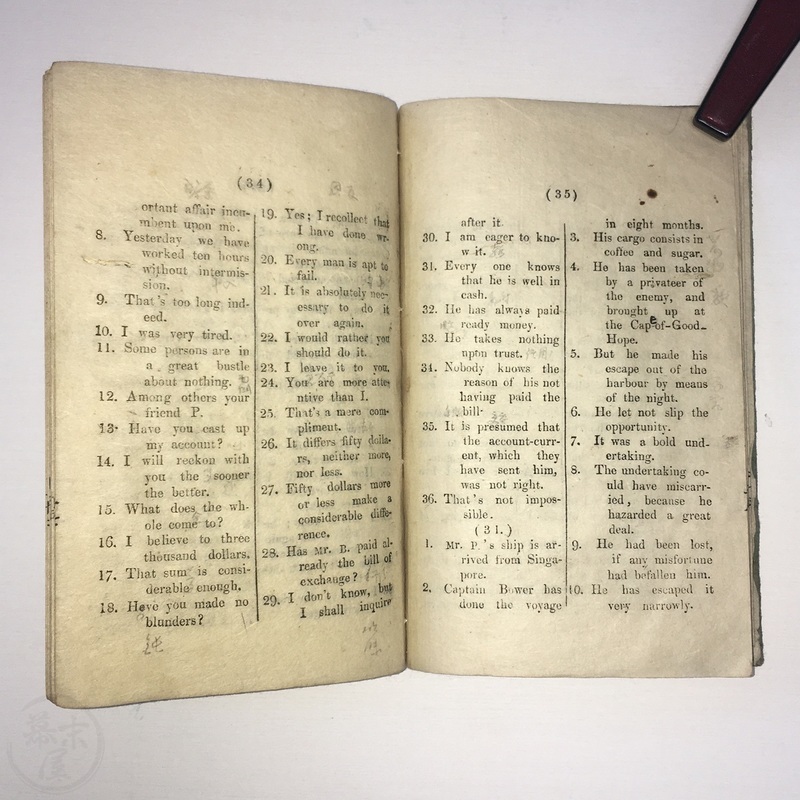 (34)
ortant affair incu-
mbent upon me.
8. Yesterday we have
worked ten hours
without intermis-
sion.
9. That's too long ind-
eed.
10. I was very tired.
11. Some persons are in
a great bustle
about nothing.
12. Among others your
friend P.
13. Have you cast up
my account?
14. I will reckon with
you the sooner
the better.
15. What does the wh-
ole come to?
16. I believe to three
thousand dollars.
17. That sum is consi-
derable enough.
18. Have you made no
blunders?
19. Yes; I recollect that
I have done wr-
ong.
20. Every man is apt to
fail.
21. It is absolutely nec-
essary to do it
over again.
22. I would rather you
should do it.
23. I leave it to you.
24. You are more atte-
ntive than I.
25. That's a mere com-
pliment.
26. It differs fifty dolla-
rs, neither more,
nor less.
27. Fifty dollars more
or less make a
considerable diffe-
rence.
28. Has Mr. B. paid al-
ready the bill of
exchange?
29. I don't know, but
I shall inquire
(35)
after it.
30. I am eager to kno-
w it.
31. Every one knows
that he is well in
cash.
32. He has always paid
ready money.
33. He takes nothing
upon trust.
34. Nobody knows the
reason of his not
having paid the
bill.
35. It is presumed that
the account-curr-
ent, which they
have sent him,
was not right.
36. That's not impos-
sible.
(31.)
1. Mr. P.'s ship is ar-
rived from Singa-
pore.
2. Captain Bower has
done the voyage
in eight months.
3. His cargo consists in
coffee and sugar.
4. He has been taken
by a privateer of
the enemy, and
brought up at
the Cape-of-Good-
Hope.
5. But he made his
escape out of the
harbour by means
of the night.
6. He let not slip the
opportunity.
7. It was a bold und-
ertaking.
8. The undertaking co-
uld have miscarr-
ied, because he
hazarded a great
deal.
9. He had been lost,
if any misfortune
had befallen him.
10. He has escaped it
very narrowly.